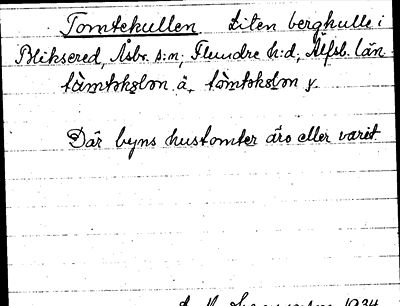 Tomtekullen Liten bergkulle i
Bliksered, Åsbr. s:n, Flundre h:d, Älfsb. län
ä. y.
Där byns hustomter äro eller varit
1934